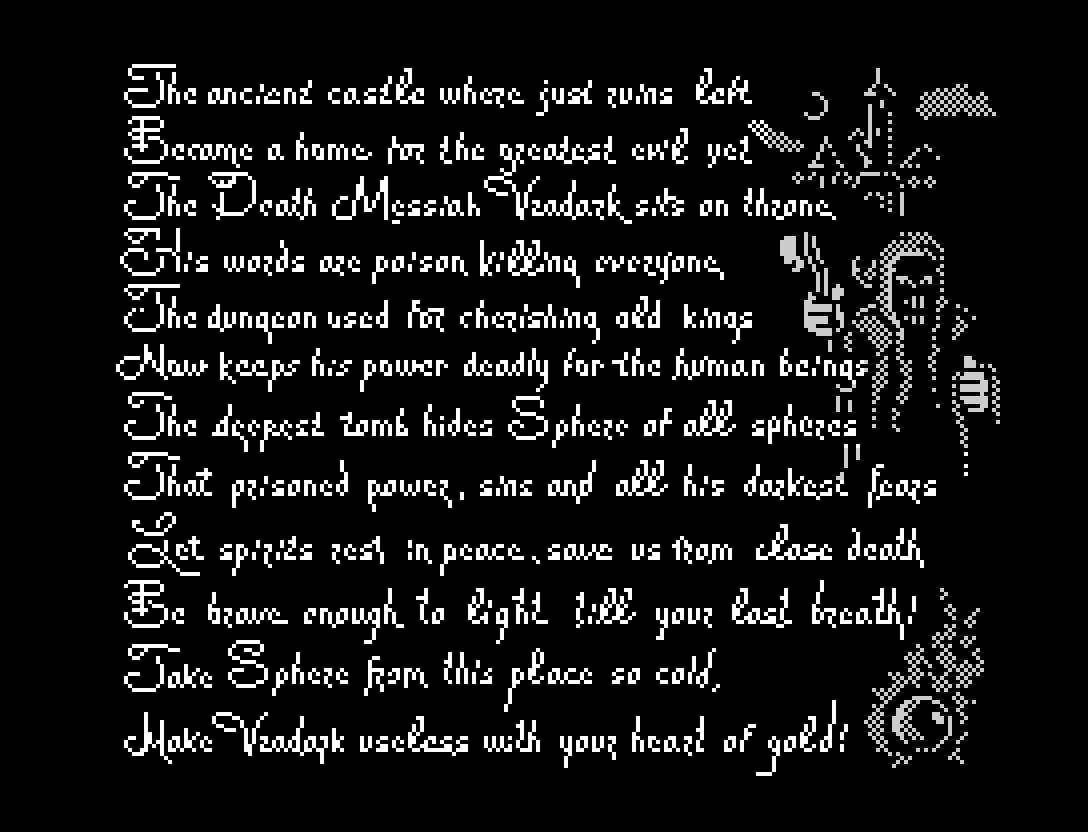 The ancient castle where just ruins left
Became a home for the greatest evil yet
The Death Messiah Vradark sits on throne,
His words are poison, killing everyone,
The dungeon used for cherishing old kings
Now keeps his power deadly for the human beings
The deepest tomb hides Sphere of all spheres
That prisoned power, sins and all his darkest fears
Let spirits rest in peace, save us from close death,
Be brave enough to light till your last breath!
Take Sphere from this place so cold,
Make Vradark useless with your heart of gold!